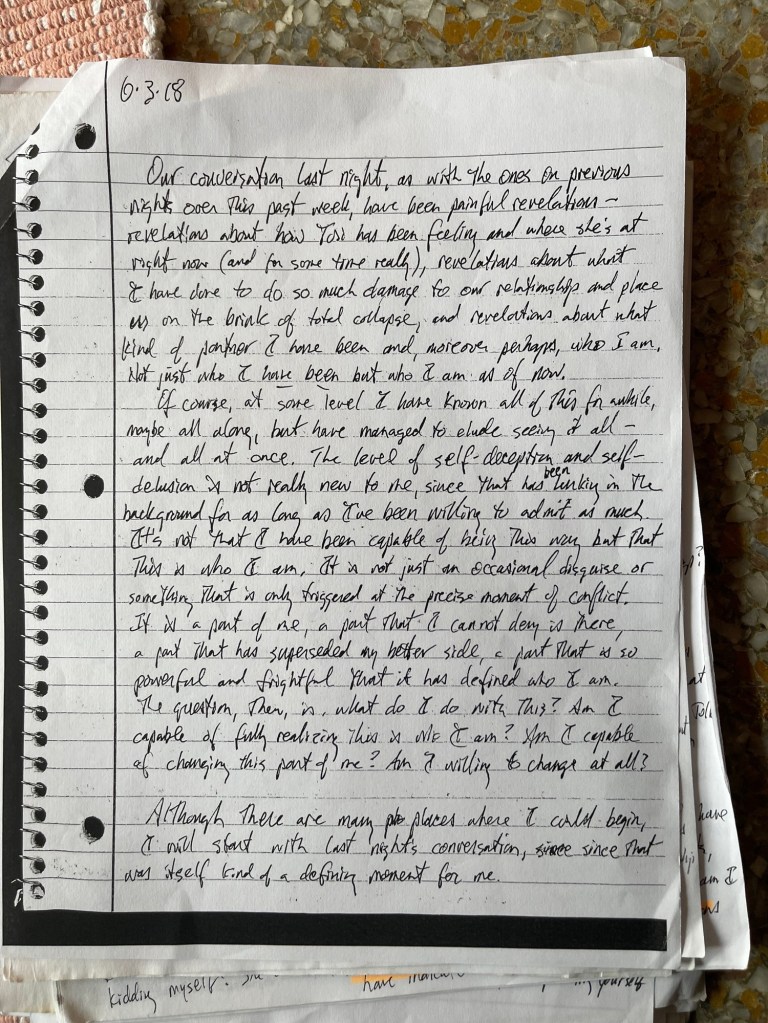 6.3.18
Our conversation last night, as with the ones on previous
nights over this past week, have been painful revelations –
revelations about how Tori has been feeling and where she's at
right now (and for some time really), revelations about what
I have done to do so much damage to our relationship and place
us on the brink of total collapse, and revelations about what
kind of partner I have been and, moreover perhaps, who I am.
Not just who I have been but who I am as of now.
Of course, at some level I have known all of this for awhile,
maybe all along, but have managed to elude seeing it all –
and all at once. The level of self-deception and self-
delusion is not really new to me, since that has been lurking in the
background for as long as I've been willing to admit as much.
It's not that I have been capable of being this way but that
this is who I am. It is not just an occasional disguise or
something that is only triggered at the precise moment of conflict.
It is a part of me, a part that I cannot deny is there,
a part that has superseded my better side, a part that is so
powerful and frightful that it has defined who I am.
The question, then, is, what do I do with this? Am I
capable of fully realizing this is who I am? Am I capable
of changing this part of me? Am I willing to change at all?
Although there are many places where I could begin,
I will start with last night's conversation, since since that
was itself kind of a defining moment for me.
at
have
am I
kidding myself. She
have
yourself